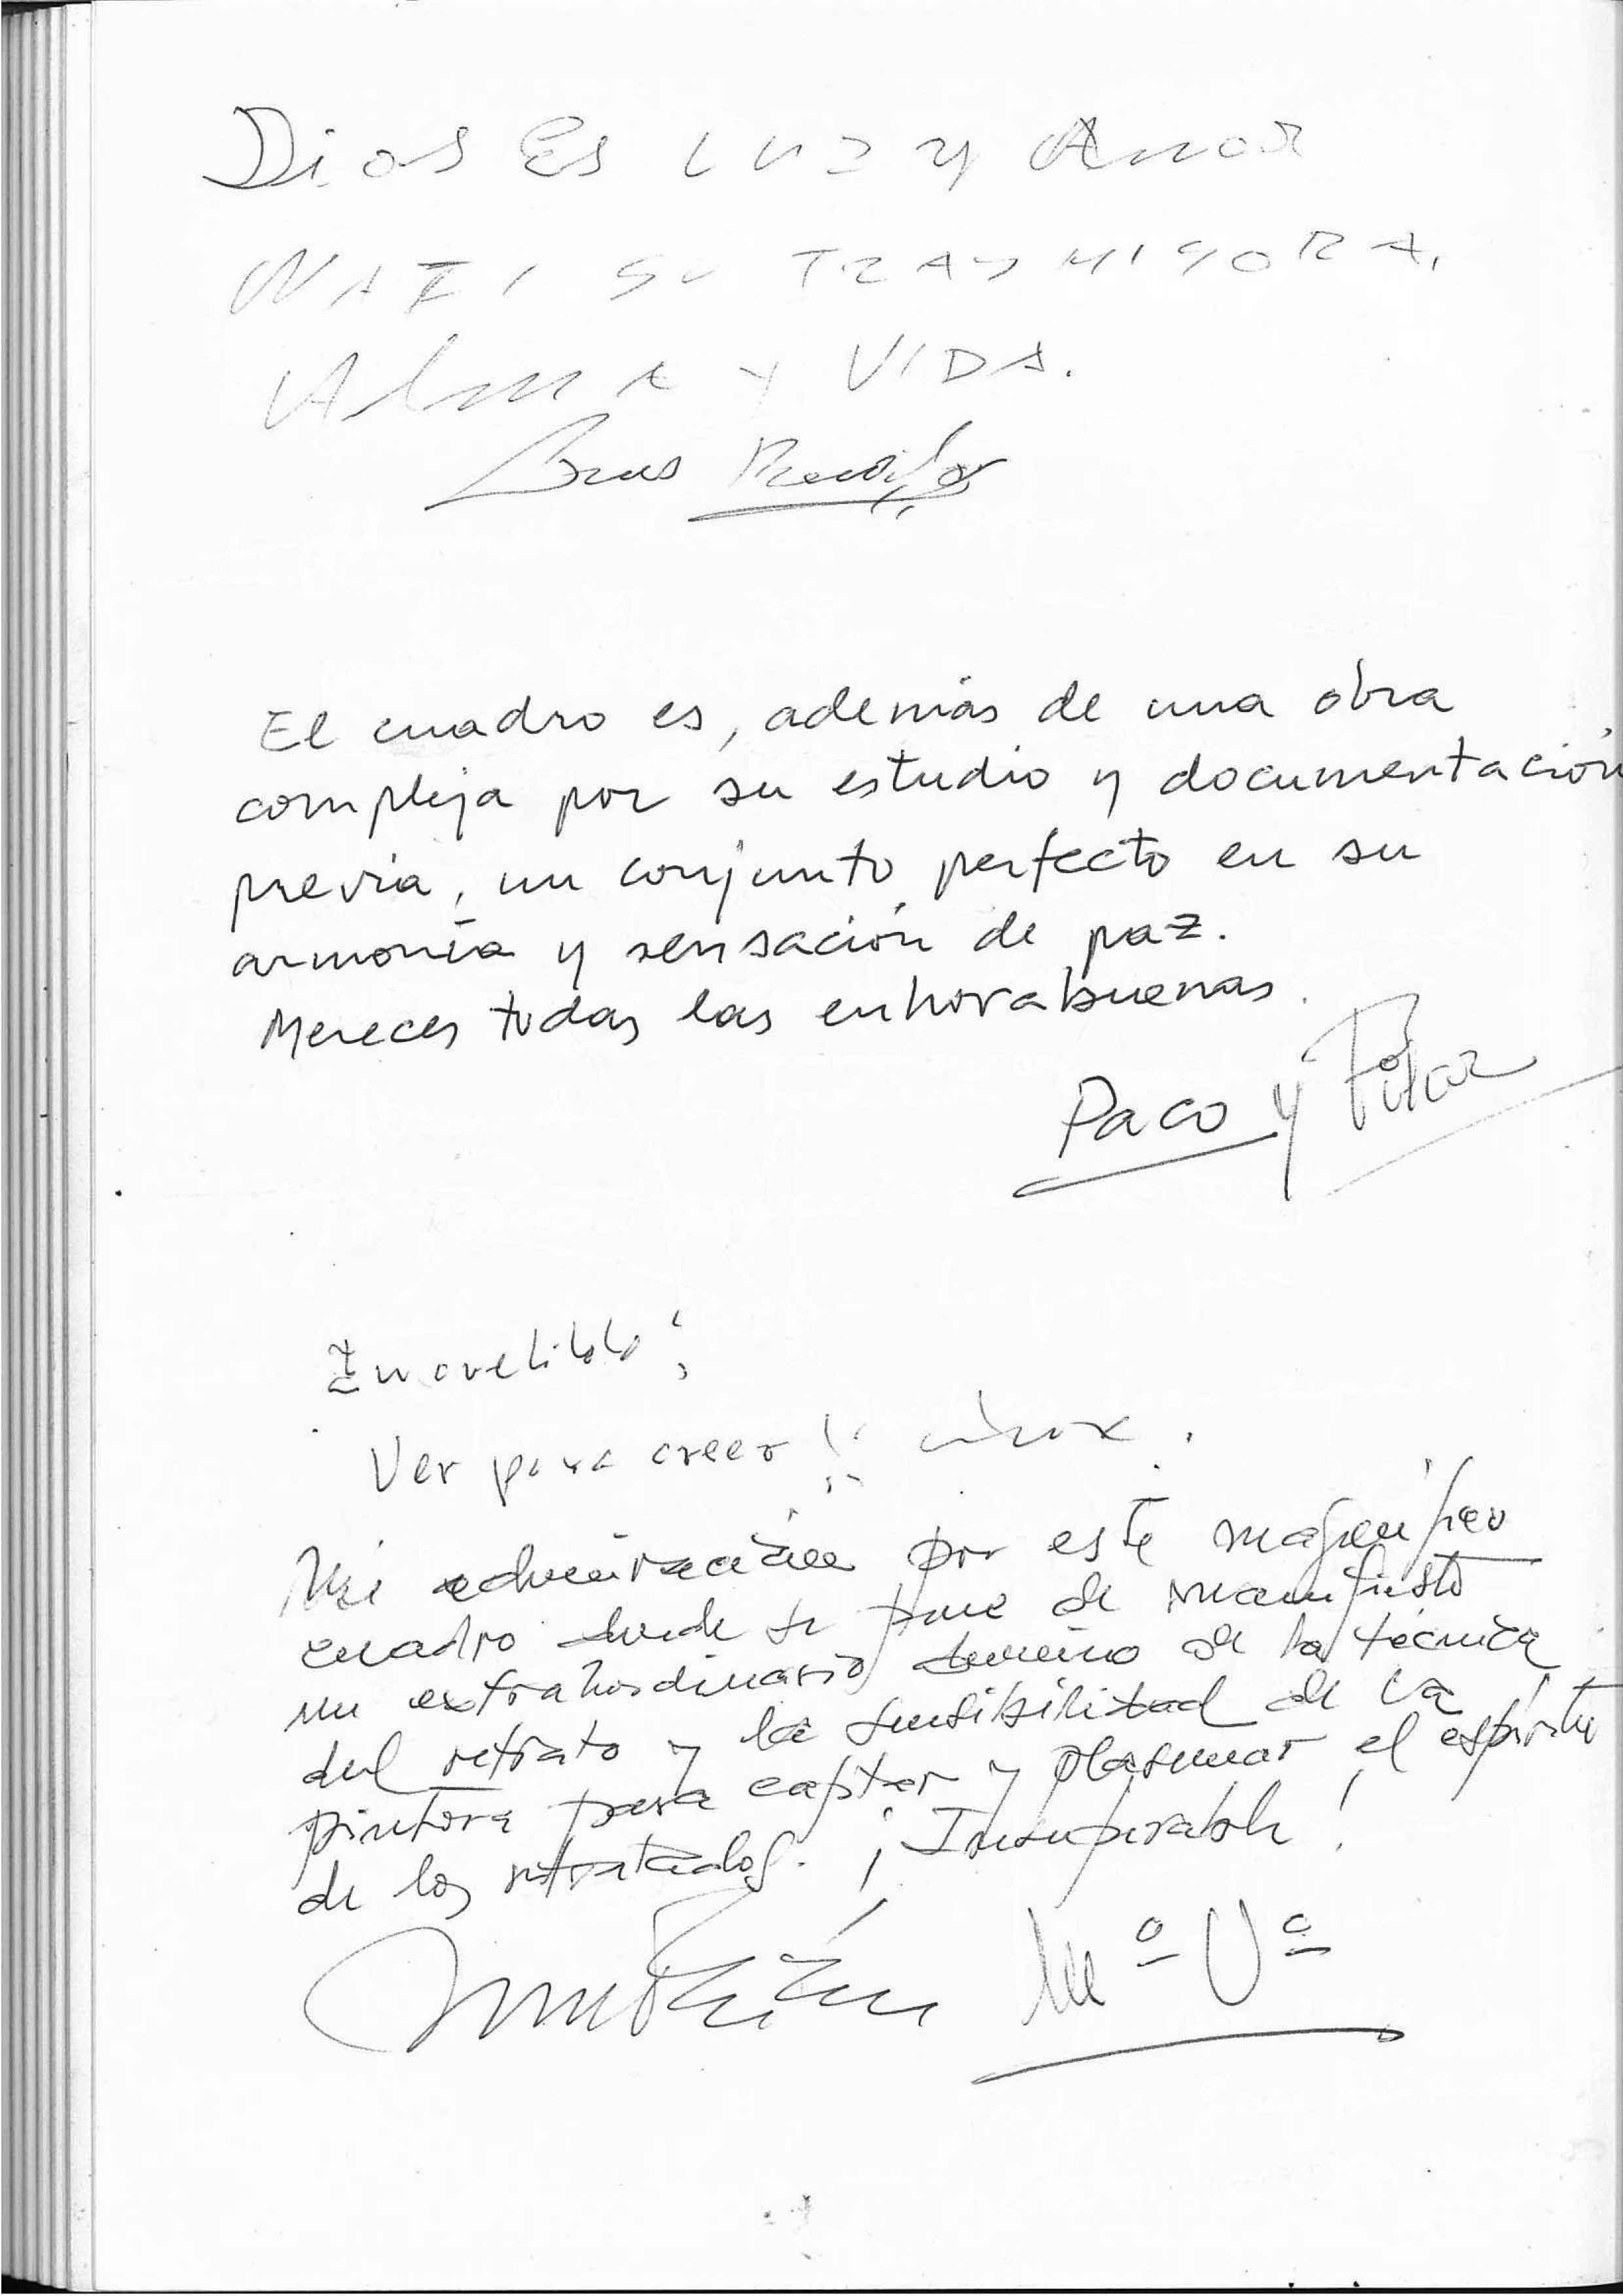 Dios Es LUZ y Amor
NATI SU TRASMISORA,
Alma y VIDA.
El cuadro es, además de una obra
compleja por su estudio y documentación
previa, un conjunto perfecto en su
armonía y sensación de paz.
Mereces todas las enhorabuenas.
Paco y Pilar
Increíble!
Ver para creer!!
Mi admiración por este magnífico
cuadro donde se pone de manifiesto
un extrahordinario dominio de la técnica
del retrato y la sensibilidad de la
pintora para captar y plasmar el espíritu
de los retratados. ¡Insuperable!
Mª Vª